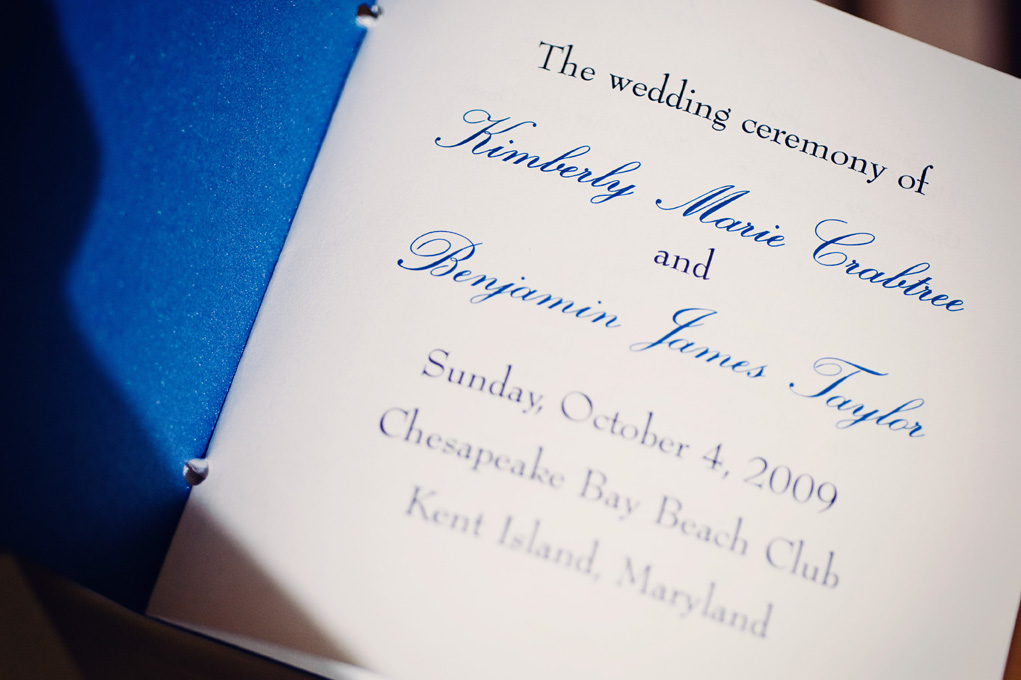 The wedding ceremony of
Kimberly Marie Crabtree
and
Benjamin James Taylor
Sunday, October 4, 2009
Chesapeake Bay Beach Club
Kent Island, Maryland